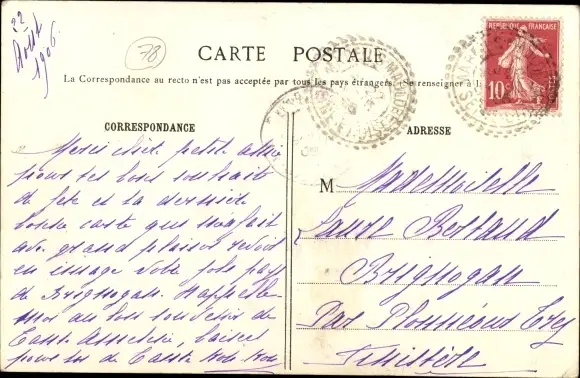 22
Août
1906
78
CARTE POSTALE
La Correspondance au recto n'est pas acceptée par tous les pays étrangers. (Se renseigner à la
RÉPUBLIQUE FRANÇAISE
10c
CORRESPONDANCE
Merci chère petite amie
pour tes bons souhaits
de fête et ta dernière
bonne carte qui m'a fait
avec grand plaisir revoir
en image votre joli pays
de Brignogan. Rappelle
moi au bon souvenir de
Tante, baisers
pour toi de Tante
ADRESSE
M Mademoiselle
Bertrand
Brignogan
Par Plounéour Trez
Finistère